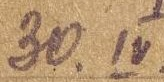 30. IV